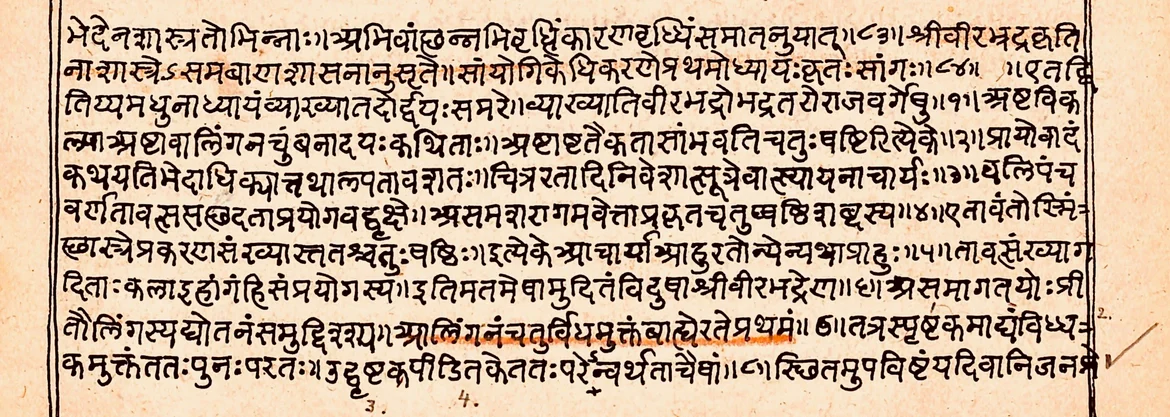 भेदेनशास्त्रतोभिन्नाः॥अभिवांछन्नभिवृध्धिंकारणवृध्धिंसमातनुयात्॥८३॥श्रीवीरभद्रकृति
नाशास्त्रेऽसमबाणशासनानुसृते॥सांयोगिकेधिकरणेप्रथमोध्यायःकृतःसांगः॥८४॥ ॥एतद्द्वि
तिय्यमधुनाध्यायंव्याख्यातदोर्द्वयःसमरे॥व्याख्यातिवीरभद्रोभद्रतरोराजवर्गेषु॥१॥अष्टविक
ल्पाअष्टावालिंगनचुंबनादयःकथिताः॥अष्टाष्टतैकतासांभवतिचतुःषष्टिरित्येके॥२॥प्रायोवादं
कथयतिभेदाधिक्यात्तथाल्पतावशतः॥चित्ररतादिनिवेशात्सूत्रेवात्स्यायनाचार्यः॥३॥
वर्णतावत्ससछदताप्रयोगवद्वृक्षे॥असमशरागमवेत्ताप्रकृतचतुष्षष्ठिशब्दस्य॥४॥एतावंतोस्मिं
छास्त्रेप्रकरणसंख्यास्ततश्चतुःषष्ठिः॥इत्येकेआचार्याआहुरतोन्येन्यथाप्राहुः॥५॥तावत्संख्याग
दिताःकलाइहांगंहिसंप्रयोगस्य॥इतिमतमेषामुदितंविदुषाश्रीवीरभद्रेण॥६॥असमागतयोःप्री
तौलिंगस्यद्योतनंसमुद्दिश्य॥आलिंगनंचतुर्विधमुक्तंबाह्येरतेप्रथमं॥७॥तत्रस्पृष्टकमाद्यंविध्ध
कमुक्तंततःपुनःपरतः॥उद्घृष्टकपीडितकेततःपरेन्वर्थताचैषां॥८॥स्छितमुपविष्टंयदिवानिजनमे
2.
3. 4.